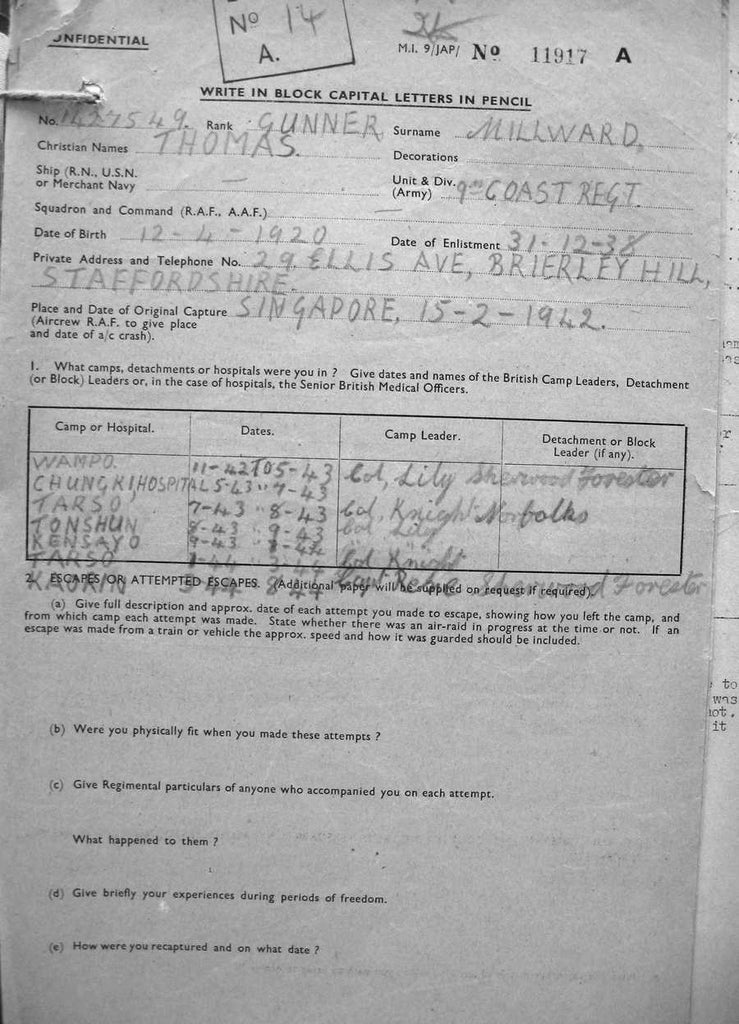 ONFIDENTIAL
No 14
A.
M.I. 9/JAP/ No 11917 A
WRITE IN BLOCK CAPITAL LETTERS IN PENCIL
No. 1427549. Rank GUNNER Surname MILLWARD.
Christian Names THOMAS. Decorations
Ship (R.N., U.S.N. or Merchant Navy — Unit & Div. (Army) 9TH COAST REGT.
Squadron and Command (R.A.F., A.A.F.) —
Date of Birth 12-4-1920 Date of Enlistment 31-12-38
Private Address and Telephone No. 29 ELLIS AVE, BRIERLEY HILL,
STAFFORDSHIRE.
Place and Date of Original Capture SINGAPORE, 15-2-1942.
(Aircrew R.A.F. to give place
and date of a/c crash).
1. What camps, detachments or hospitals were you in ? Give dates and names of the British Camp Leaders, Detachment
(or Block) Leaders or, in the case of hospitals, the Senior British Medical Officers.
Camp or Hospital. Dates. Camp Leader. Detachment or Block Leader (if any).
WAMPO. 11-42 TO 5-43 Col, Lily Sherwood Forester
CHUNGKI HOSPITAL 5-43 " 7-43
TARSO, 7-43 " 8-43 Col, Knight Norfolks
TONSHUN 8-43 " 9-43 Col Lily
KENSAYO 9-43 " 1-44
TARSO 1-44 3-44 Col Knight
44 Sherwood Forester
2. ESCAPES OR ATTEMPTED ESCAPES. (Additional paper will be supplied on request if required).
(a) Give full description and approx. date of each attempt you made to escape, showing how you left the camp, and
from which camp each attempt was made. State whether there was an air-raid in progress at the time or not. If an
escape was made from a train or vehicle the approx. speed and how it was guarded should be included.
(b) Were you physically fit when you made these attempts ?
(c) Give Regimental particulars of anyone who accompanied you on each attempt.
What happened to them ?
(d) Give briefly your experiences during periods of freedom.
(e) How were you recaptured and on what date ?
to
was
not.
it